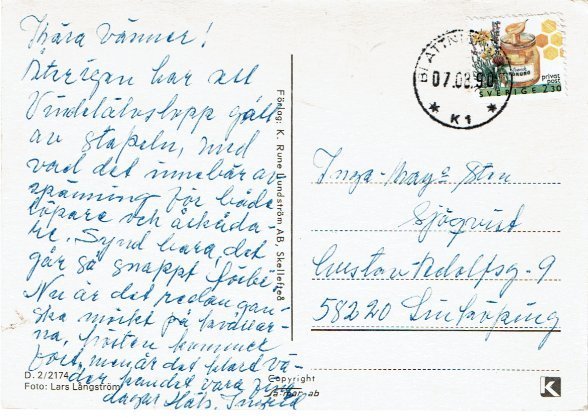 Kära vänner!
Återigen har ett
Vindelälvslopp gått
av stapeln, med
vad det innebär av
spänning för både
löpare och åskåda-
re. Synd bara, det
går så snappt förbi.
Nu är det redan gan-
ska mörkt på kvällar-
na, hösten kommer
fort, men är det klart vä-
der kan det vara
dagar. Häls.
D. 2/2174
Foto: Lars Långström
Copyright
Förlag: K. Rune Lundström AB, Skellefteå
BLATTNI
07.08.90
* K1 *
privat
post
SVERIGE 2,30
Inga-May o Sten
Sjöqvist
Gustav Adolfsg. 9
58220 Linköping
K